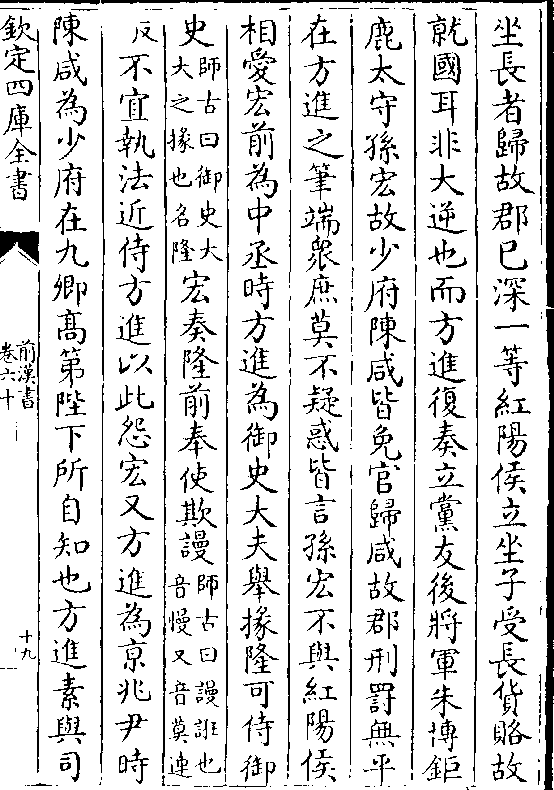 坐長者歸故郡已深一等紅陽侯立坐子受長貨賂故
就國耳非大逆也而方進復奏立黨友後將軍朱博鉅
鹿太守孫宏故少府陳咸皆免官歸咸故郡刑罰無平
在方進之筆端衆庶莫不疑惑皆言孫宏不與紅陽侯
相愛宏前為中丞時方進為御史大夫舉掾隆可侍御
史師古曰御史大夫之掾也名隆宏奏隆前奉使欺謾師古曰謾誑也音慢又音莫連
反不宜執法近侍方進以此怨宏又方進為京兆尹時
陳咸為少府在九卿髙第陛下所自知也方進素與司
欽定四庫全書
前漢書
卷六十
十九